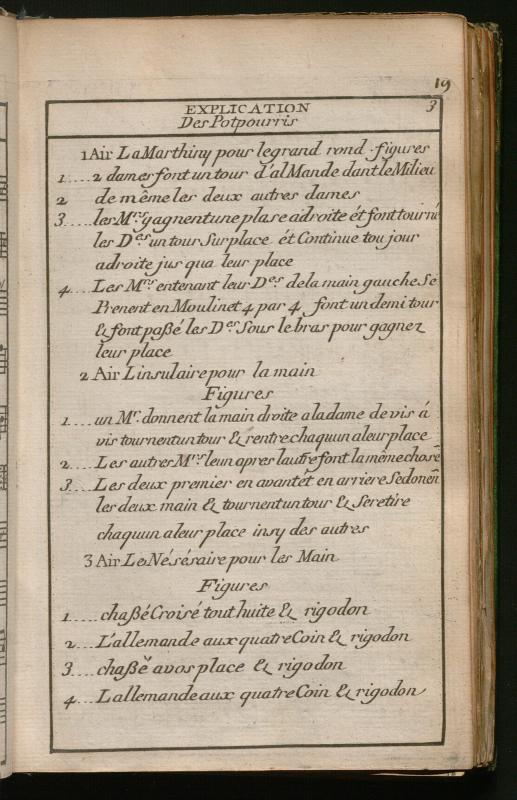 19
EXPLICATION 3
Des Potpourris
1 Air La Marthiny pour le grand rond figures
1 .... 2 dames font un tour d'al Mande dant le Milieu
2 de même les deux autres dames
3 .... les Mrs gagnent une plase adroite ét font tourné
les Des un tour Sur place ét Continue tou jour
adroite jus qua leur place
4 .... Les Mrs entenant leur Des de la main gauche Se
Prenent en Moulinet 4 par 4 font un demi tour
& font paßé les Des Sous le bras pour gagnez
leur place
2 Air Linsulaire pour la main
Figures
1 .... un Mr. donnent la main droite a la dame de vis á
vis tournent un tour & rentre chaquun a leur place
2 .... Les autres Mrs leun apres lautre font la même chose
3 .... Les deux premier en avant ét en arriere Se donen̄
les deux main & tournent un tour & Se retire
chaquun a leur place insy des autres
3 Air Le Nésésaire pour les Main
Figures
1 ..... chaßé Croisé tout huite & rigodon
2 .... L'allemande aux quatre Coin & rigodon
3 .... chaßé a vos place & rigodon
4 .... Lallemande aux quatre Coin & rigodon